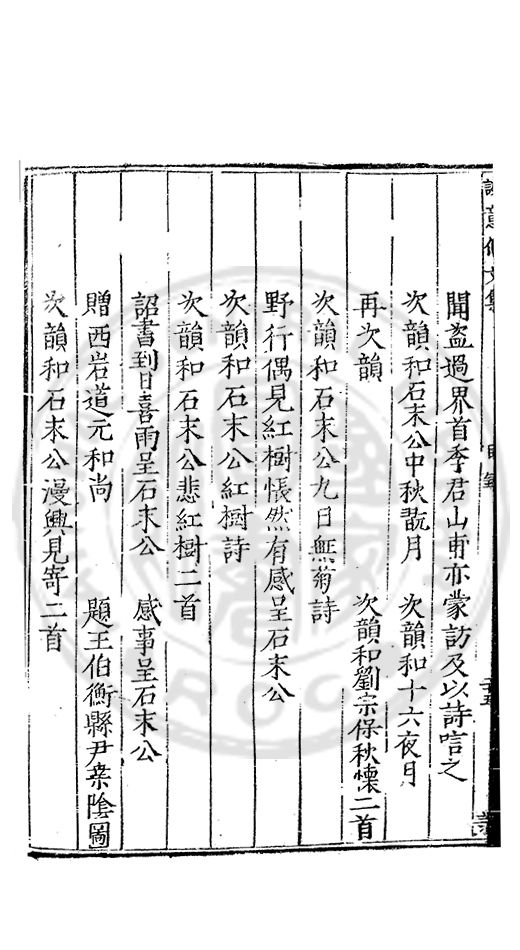 誠意伯文集
聞盗過界首季君山軒亦蒙訪及以詩唁之
次韻和石末公中秋翫月　次韻和十六夜月
再次韻　次韻和劉宗保秋懷二首
次韻和石末公九日無菊詩
野行偶見紅樹悵然有感呈石末公
次韻和石末公紅樹詩
次韻和石末公悲紅樹二首
詔書到日喜雨呈石末公　感事呈石末公
贈西岩道元和尚　題王伯衡縣尹桑陰圖
次韻和石末公漫興見寄二首